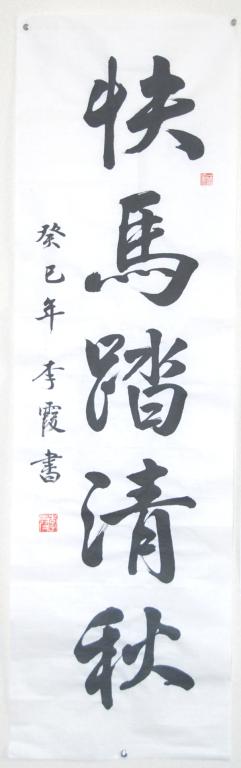 快馬踏清秋
癸巳年 李霞書